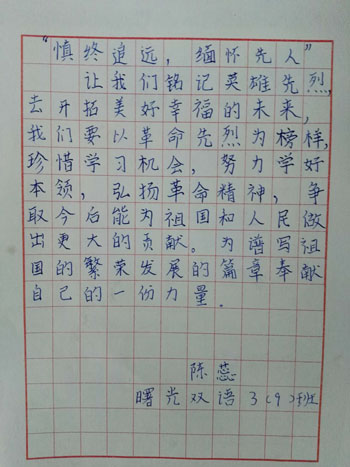 “慎终追远，缅怀先人”
让我们铭记英雄先烈，
去开拓美好幸福的未来，
我们要以革命先烈为榜样，
珍惜学习机会，努力学好
本领，弘扬革命精神，争
取今后能为祖国和人民做
出更大的贡献。为谱写祖
国的繁荣发展的篇章奉献
自己的一份力量。
陈蕊
曙光双语3（9）班